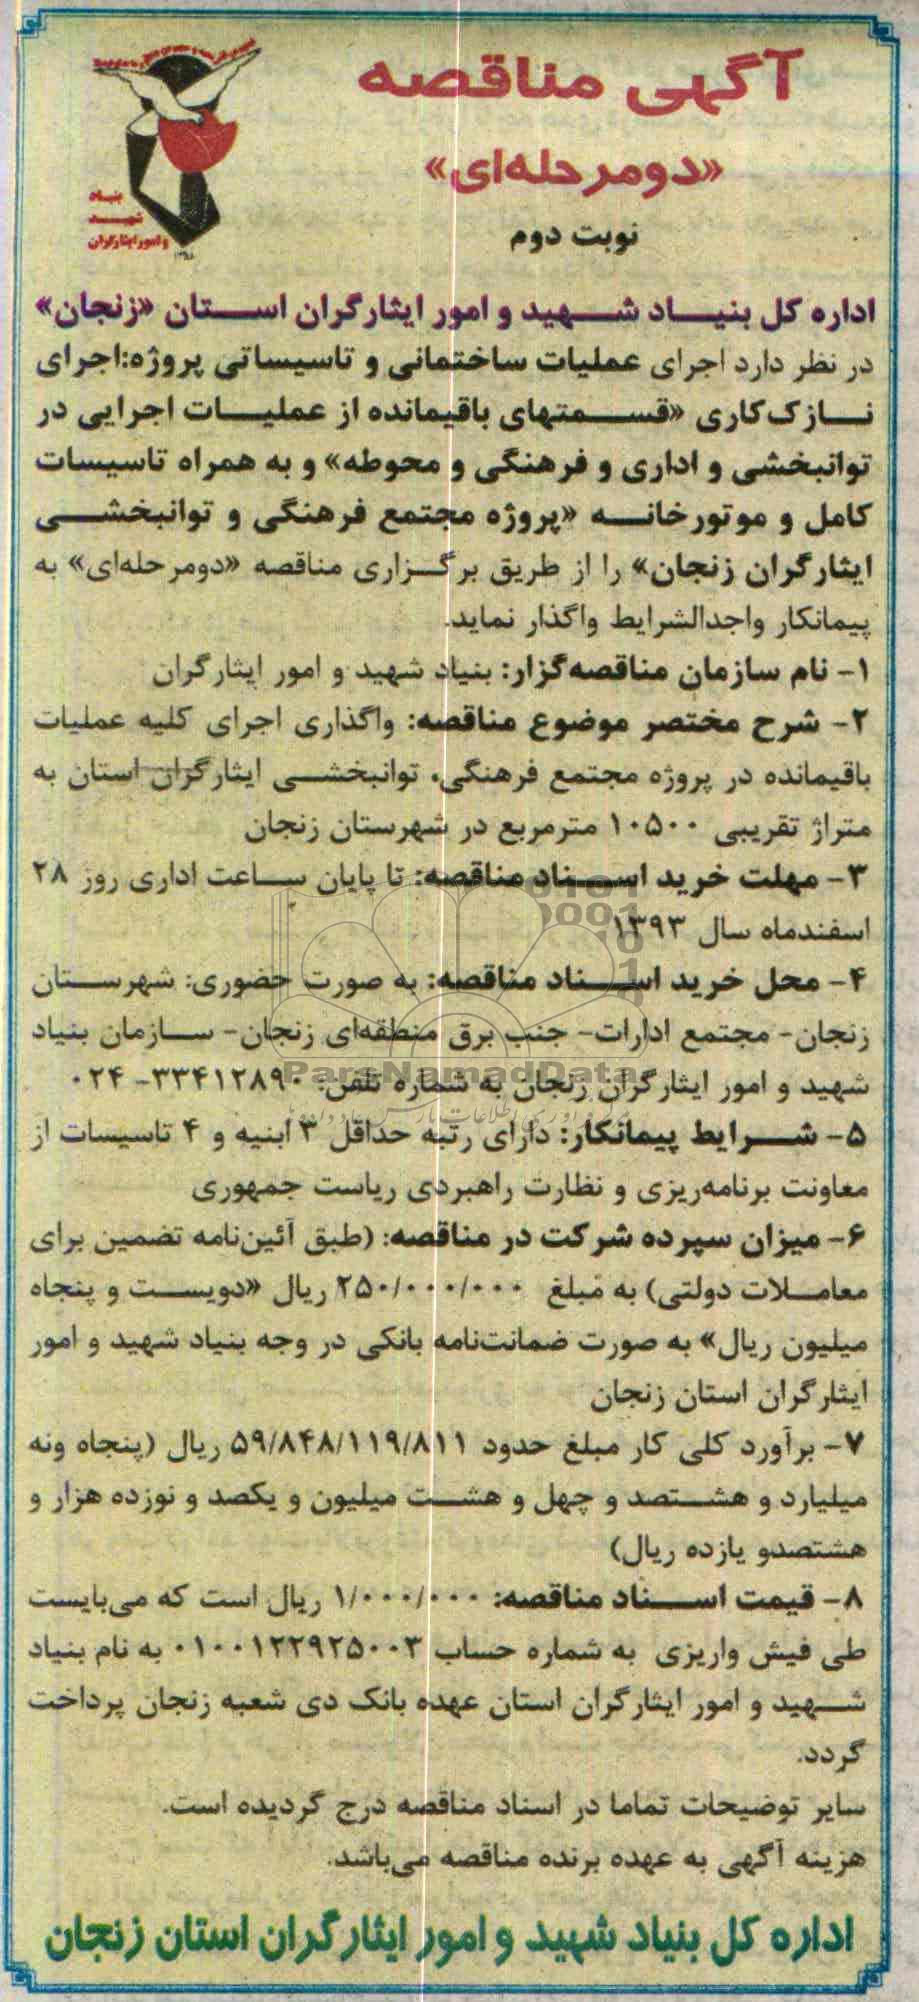 آگهی مناقصه
«دومرحله‌ای»
نوبت دوم
بنیاد
شهید
و امور ایثارگران
اداره کل بنیاد شهید و امور ایثارگران استان «زنجان»
در نظر دارد اجرای عملیات ساختمانی و تاسیساتی پروژه:اجرای
نازک‌کاری «قسمتهای باقیمانده از عملیات اجرایی در
توانبخشی و اداری و فرهنگی و محوطه» و به همراه تاسیسات
کامل و موتورخانه «پروژه مجتمع فرهنگی و توانبخشی
ایثارگران زنجان» را از طریق برگزاری مناقصه «دومرحله‌ای» به
پیمانکار واجدالشرایط واگذار نماید.
۱- نام سازمان مناقصه‌گزار: بنیاد شهید و امور ایثارگران
۲- شرح مختصر موضوع مناقصه: واگذاری اجرای کلیه عملیات
باقیمانده در پروژه مجتمع فرهنگی، توانبخشی ایثارگران استان به
متراژ تقریبی ۱۰۵۰۰ مترمربع در شهرستان زنجان
۳- مهلت خرید اسناد مناقصه: تا پایان ساعت اداری روز ۲۸
اسفندماه سال ۱۳۹۳
۴- محل خرید اسناد مناقصه: به صورت حضوری: شهرستان
زنجان- مجتمع ادارات- جنب برق منطقه‌ای زنجان- سازمان بنیاد
شهید و امور ایثارگران زنجان به شماره تلفن: ۳۳۴۱۲۸۹۰- ۰۲۴
ParsNamadData
۵- شرایط پیمانکار: دارای رتبه حداقل ۳ ابنیه و ۴ تاسیسات از
معاونت برنامه‌ریزی و نظارت راهبردی ریاست جمهوری
۶- میزان سپرده شرکت در مناقصه: (طبق آئین‌نامه تضمین برای
معاملات دولتی) به مبلغ ۲۵۰/۰۰۰/۰۰۰ ریال «دویست و پنجاه
میلیون ریال» به صورت ضمانت‌نامه بانکی در وجه بنیاد شهید و امور
ایثارگران استان زنجان
۷- برآورد کلی کار مبلغ حدود ۵۹/۸۴۸/۱۱۹/۸۱۱ ریال (پنجاه ونه
میلیارد و هشتصد و چهل و هشت میلیون و یکصد و نوزده هزار و
هشتصدو یازده ریال)
۸- قیمت اسناد مناقصه: ۱/۰۰۰/۰۰۰ ریال است که می‌بایست
طی فیش واریزی به شماره حساب ۰۱۰۰۱۲۲۹۲۵۰۰۳ به نام بنیاد
شهید و امور ایثارگران استان عهده بانک دی شعبه زنجان پرداخت
گردد.
سایر توضیحات تماما در اسناد مناقصه درج گردیده است.
هزینه آگهی به عهده برنده مناقصه می‌باشد.
اداره کل بنیاد شهید و امور ایثارگران استان زنجان